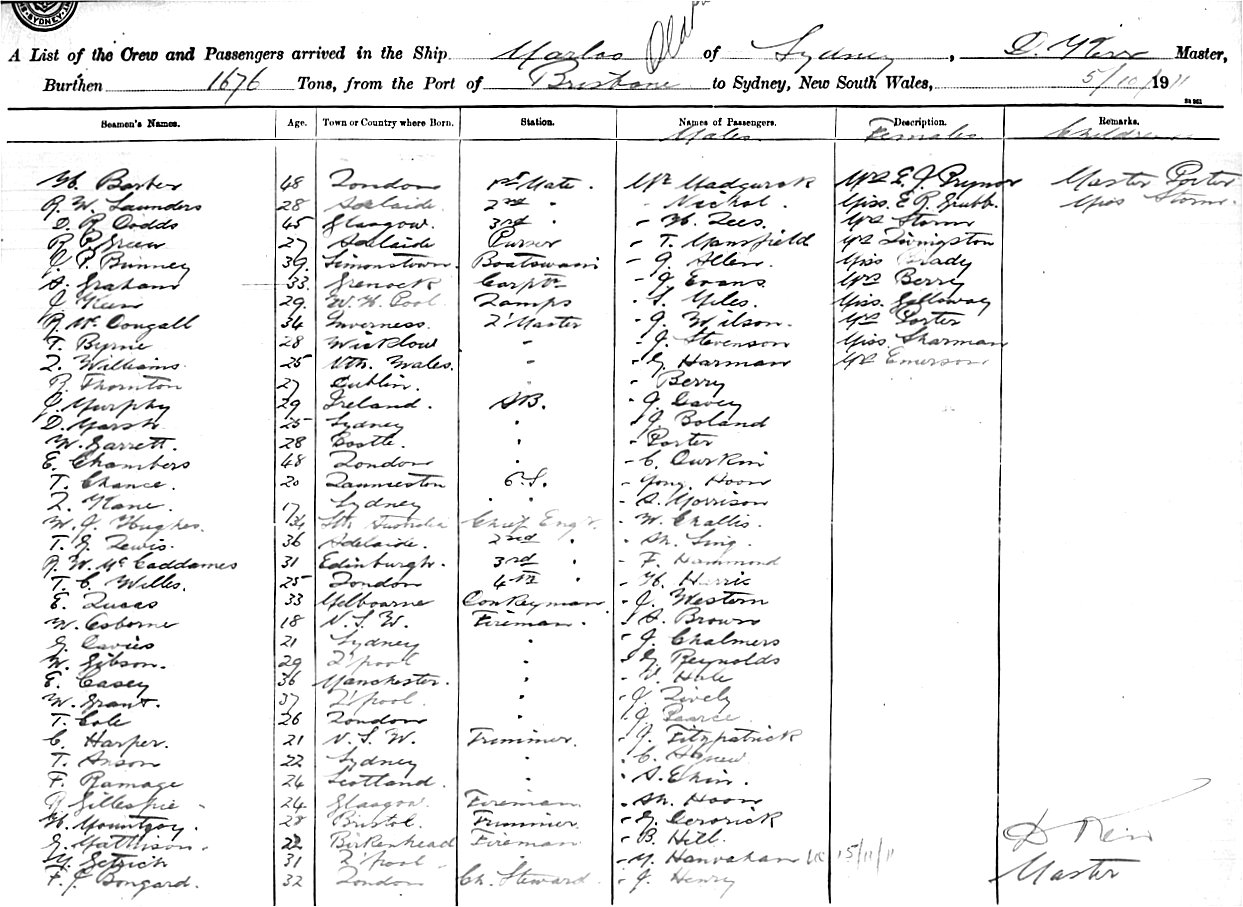 SYDNEY
A List of the Crew and Passengers arrived in the Ship Marloo of Sydney, D. Keir Master,
Burthen 1676 Tons, from the Port of Brisbane to Sydney, New South Wales, 5/10/1911
Seamen's Names. Age. Town or Country where Born. Station. Names of Passengers. Description. Remarks.
Males Females Children
H. Barber 48 London 1st Mate. Mr Master Porter
R. W. Saunders 28 Adelaide 2nd " - Nichol. Miss. E. R. Grubb. Miss Storm.
D. R. Dodds 45 Glasgow. 3rd " - H. Lees. Mrs Storm
R. P. Green 27 Adelaide Purser - T. Mansfield Mrs Livingston
J. P. Binney 39 Simonstown. Boatswain - J. Allen. Miss Brady
A. Graham 33. Grenock Carptr - J. Evans Mrs Berry
J. Keen 29. W. H. Pool Lamps - S. Miles. Miss. Galloway
R. Mc Dougall 34 Inverness. 2' Master - J. Wilson. Mrs Porter
T. Byrne 28 Wicklow " - J. Stevenson Miss. Sharman
L. Williams. 25 Nth. Wales. " - G. Harman Mrs Emerson
R. Thornton 27 Dublin. - Berry
J. Murphy 29 Ireland. AB. - J. Davey
D. Marsh 25 Sydney " - J. Boland
W. Garrett. 28 Bootle. " - Porter
E. Chambers 48 London " - C. Durkin
T. Chance. 20 Launceston O.S. - Yong. Hoon
L. Kane. 17 Sydney " - A. Morrison
W. J. Hughes. 34 Sth Australia Chief Engr. - W. Challis.
T. G. Lewis. 36 Adelaide. 2nd " - Ah. Sing.
R. W. Mc Caddames 31 Edinburgh. 3rd " - F. Hammond
T. C. Willes. 25 London 4th " - H. Harris
E. Lucas 33 Melbourne Donkeyman. - J. Western
W. Osborne 18 N.S.W. Fireman. - A. Brown
G. Davies 21 Sydney " - J. Chalmers
W. Gibson. 29 L'pool " - G. Reynolds
E. Casey 36 Manchester. " - V. Hale
W. Grant. 37 L'pool. " - J. Lively
T. Cole 26 London " - J. Pearce.
C. Harper. 21 N.S.W. Trimmer. - J. Fitzpatrick
T. Anson 22 Sydney " - C. Agnew
F. Ramage 24 Scotland. " - A. Ekin.
R. Gillespie 24. Glasgow. Fireman. - Ah. Hoon
H. Mountjoy. 28 Bristol. Trimmer. - G.
G. Mathison. 22 Birkenhead Fireman - B. Hill. D Keir
31 L'pool " - M. Hanrahan 15/11/11 Master
F. J. Bongard. 32 London Ch. Steward. - J. Henry